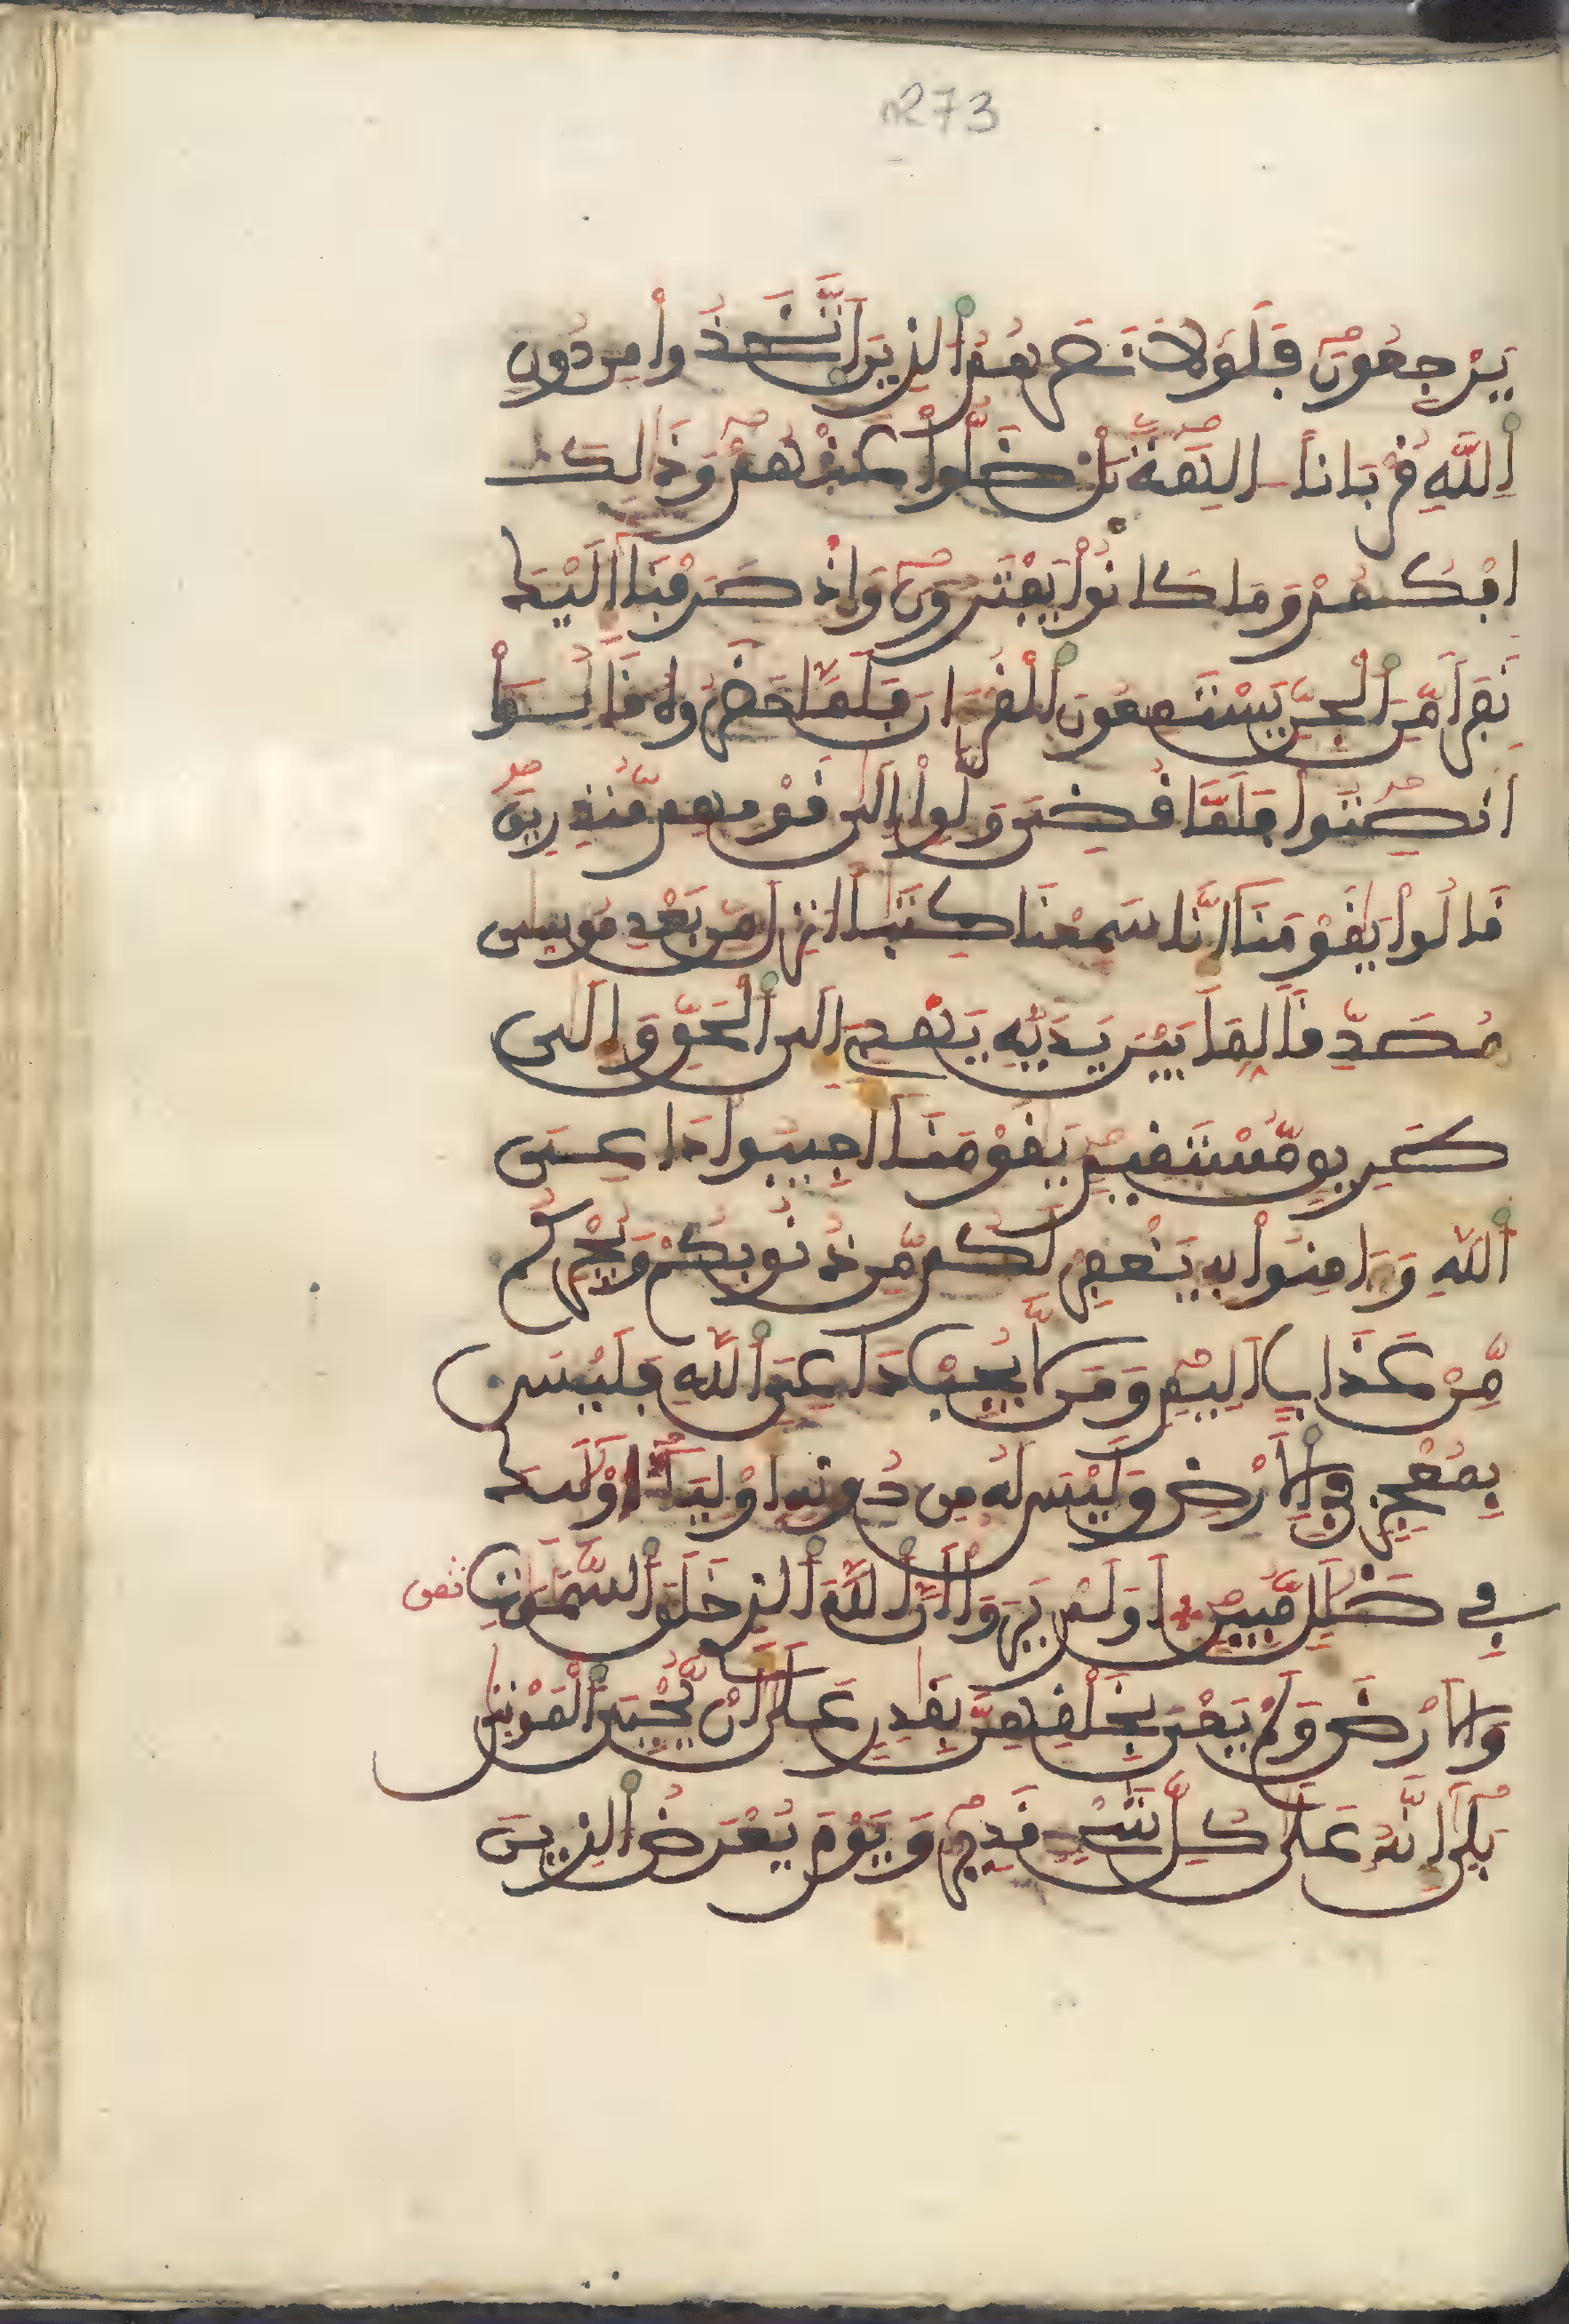 273
يَرْجِعُونَ فَلَوْلَا نَصَرَهُمُ الذِينَ اَتَّخَذُوا مِن دُونِ
اِللَّهِ قُرْبَاناً ـالِهَةَۢ بَلْ ضَلُّواْ عَنْهُمْ وَذَٰلِكَ
اِفْكُهُمْ وَمَا كَانُواْ يَفْتَرُونَ وَإِذْ صَرَفْنَا إِلَيْكَ
نَفَراً مِّنَ اَلْجِنِّ يَسْتَمِعُونَ اَلْقُرْءَانَ فَلَمَّا حَضَرُوهُ قَالُوٓاْ
أَنصِتُواْ فَلَمَّا قُضِىَ وَلَّوِاْ اِلَىٰ قَوْمِهِم مُّنذِرِينَ
قَالُواْ يَٰقَوْمَنَآ إِنَّا سَمِعْنَا كِتَٰباً انزِلَ مِنۢ بَعْدِ مُوسَىٰ
مُصَدِّقاً لِّمَا بَيْنَ يَدَيْهِ يَهْدِےٓ إِلَى اَلْحَقِّ وَإِلَىٰ
طَرِيقٍ مُّسْتَقِيمٍ يَٰقَوْمَنَآ أَجِيبُواْ دَاعِىَ
اَللَّهِ وَءَامِنُواْ بِهِ يَغْفِرْ لَكُم مِّن ذُنُوبِكُمْ وَيُجِرْكُم
مِّنْ عَذَابٍ اَلِيمٍ وَمَن لَّا يُجِبْ دَاعِىَ اَللَّهِ فَلَيْسَ
بِمُعْجِزٍ فِي اِلَارْضِ وَلَيْسَ لَهُ مِن دُونِهِ أَوْلِيَآءُ اوْلَٰٓئِكَ
فِي ضَلَٰلٍ مُّبِينٍ أَوَلَمْ يَرَوَاْ اَنَّ اَللَّهَ اَلذِي خَلَقَ اَلسَّمَٰوَٰتِ
ثمن
وَالَارْضَ وَلَمْ يَعْىَ بِخَلْقِهِنَّ بِقَٰدِرٍ عَلَىٰٓ أَنْ يُّحْيِيَ اَلْمَوْتَىٰ
بَلَىٰٓ إِنَّهُ عَلَىٰ كُلِّ شَيْءٍ قَدِيرٌ وَيَوْمَ يُعْرَضُ اُلذِينَ